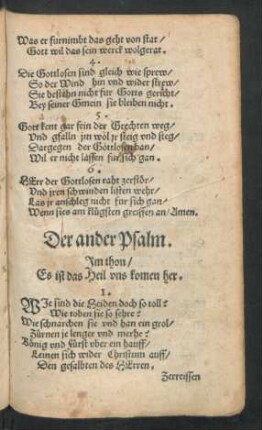 Was er furnimbt das geht von stat/
Gott wil das sein werck wolgerat.
4.
Die Gottlosen sind gleich wie sprew/
So der Wind hin vnd wider strew/
Sie bestehn nicht fur Gotts gericht/
Bey seiner Gmein sie bleiben nicht.
5.
Gott kent gar fein der Grechten weg/
Vnd gfalln jm wol je steig vnd steg/
Dargegen der Gottlosen ban/
Wil er nicht lassen fur sich gan.
6.
HErr der Gottlosen raht zerstör/
Vnd jren schwinden listen wehr/
Las je anschleg nicht fur sich gan/
Wenn sies am klügsten greiffen an/Amen.
Der ander Psalm.
Im thon/
Es ist das Heil vns komen her.
1.
WJe sind die Heiden doch so toll?
Wie toben sie so sehre?
Wie schnarchen sie vnd han ein grol/
Zürnen je lenger vnd mehr?
König vnd fürst vber ein hauff/
Leinen sich wider Christum auff/
Den gesalbten des HErren.
Zerreissen